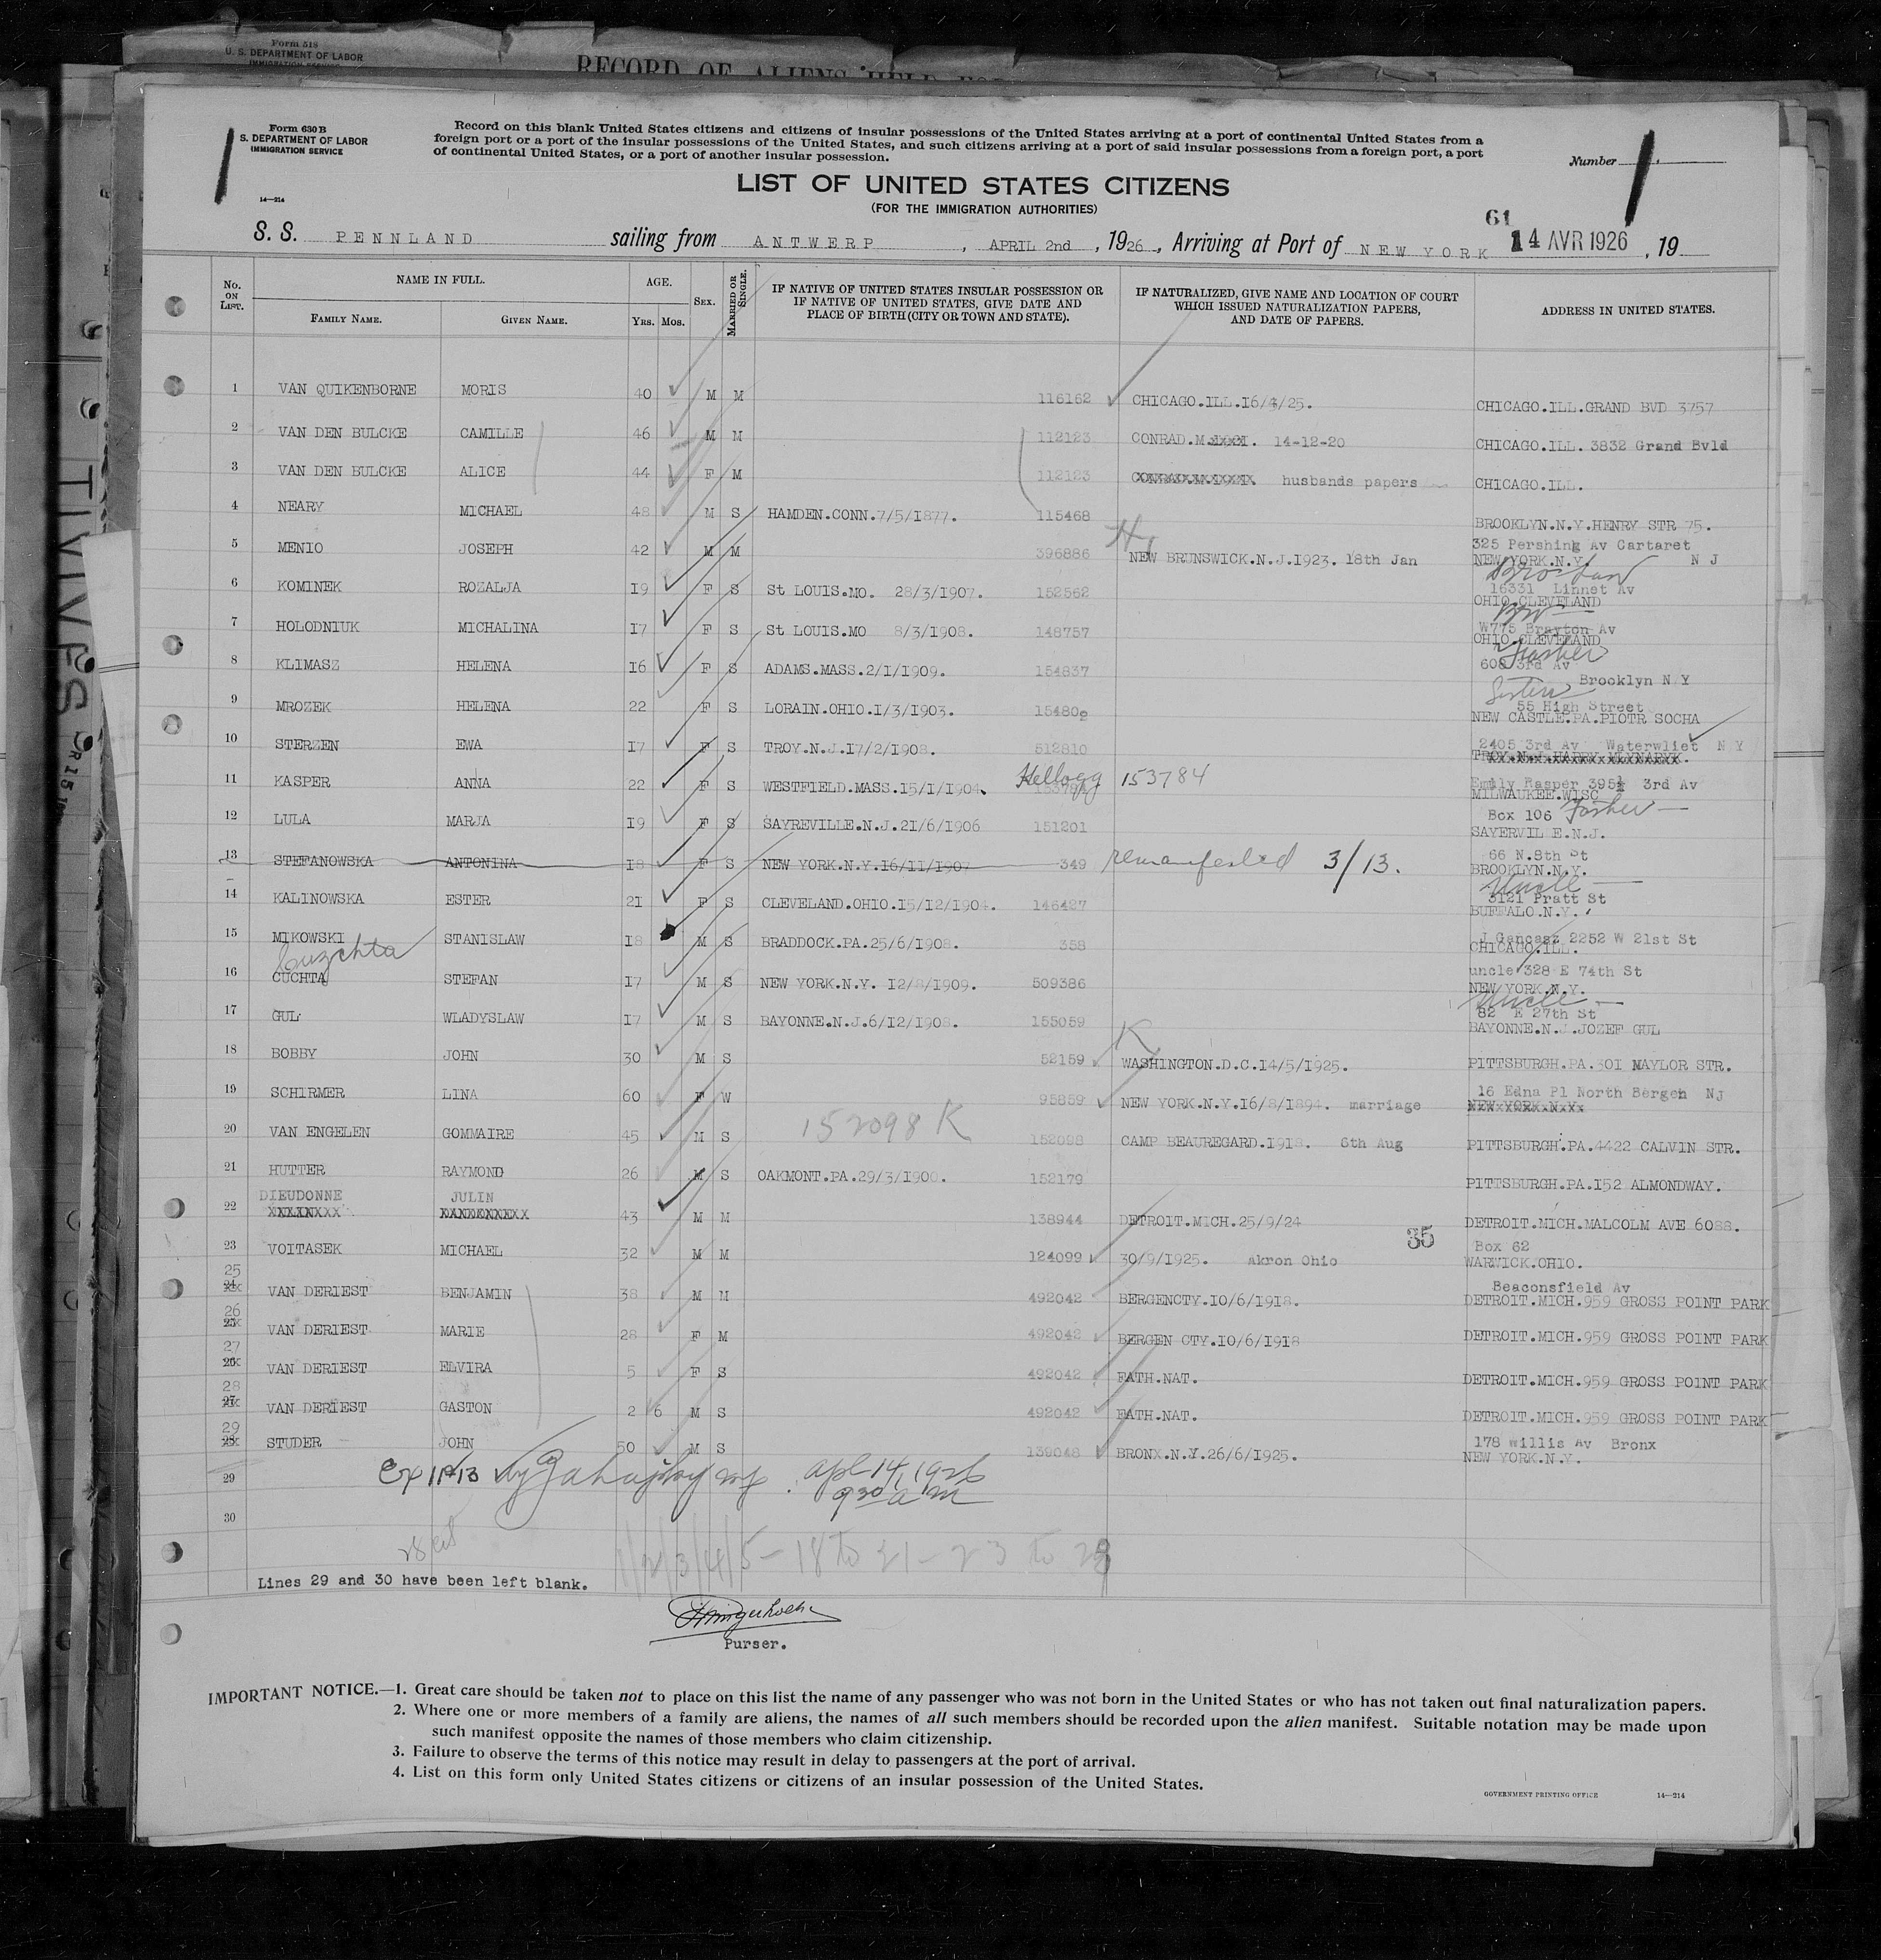 Form 518
U. S. DEPARTMENT OF LABOR
IMMIGRATION SERVICE
RECORD OF ALIENS HELD FOR
Form 630 B
S. DEPARTMENT OF LABOR
IMMIGRATION SERVICE
14—214
Record on this blank United States citizens and citizens of insular possessions of the United States arriving at a port of continental United States from a
foreign port or a port of the insular possessions of the United States, and such citizens arriving at a port of said insular possessions from a foreign port, a port
of continental United States, or a port of another insular possession.
Number
LIST OF UNITED STATES CITIZENS
(FOR THE IMMIGRATION AUTHORITIES)
61
S. S. PENNLAND sailing from ANTWERP, APRIL 2nd, 1926, Arriving at Port of NEW YORK 14 AVR 1926, 19
No. ON LIST. NAME IN FULL. FAMILY NAME. GIVEN NAME. AGE. YRS. MOS. SEX. MARRIED OR SINGLE. IF NATIVE OF UNITED STATES INSULAR POSSESSION OR IF NATIVE OF UNITED STATES, GIVE DATE AND PLACE OF BIRTH (CITY OR TOWN AND STATE). IF NATURALIZED, GIVE NAME AND LOCATION OF COURT WHICH ISSUED NATURALIZATION PAPERS, AND DATE OF PAPERS. ADDRESS IN UNITED STATES.
1 VAN QUIKENBORNE MORIS 40 M M 116162 CHICAGO.ILL.I6/4/25. CHICAGO.ILL.GRAND BVD 3757
2 VAN DEN BULCKE CAMILLE 46 M M 112123 CONRAD.M 14-12-20 CHICAGO.ILL. 3832 Grand Bvld
3 VAN DEN BULCKE ALICE 44 F M 112123 husbands papers CHICAGO.ILL.
4 NEARY MICHAEL 48 M S HAMDEN.CONN.7/5/I877. 115468 BROOKLYN.N.Y.HENRY STR 75.
5 MENIO JOSEPH 42 M M 396886 NEW BRUNSWICK.N.J.I923. 18th Jan 325 Pershing Av Cartaret
NEW YORK.N.Y. N J
6 KOMINEK ROZALJA I9 F S St LOUIS.MO. 28/3/I907. 152562 16331 Linnet Av
OHIO.CLEVELAND
7 HOLODNIUK MICHALINA I7 F S St LOUIS.MO 8/3/I908. 148757 W775 Brayton Av
OHIO.CLEVELAND
8 KLIMASZ HELENA I6 F S ADAMS.MASS.2/I/I909. 154837 608 3rd Av
Brooklyn N Y
Sister
9 MROZEK HELENA 22 F S LORAIN.OHIO.I/3/I903. 15480 55 High Street
NEW CASTLE.PA.PIOTR SOCHA
10 STERZEN EWA I7 F S TROY.N.J.I7/2/I908. 512810 2405 3rd Av Waterwliet N Y
TROY.N.J.HARRY MLYNARYK.
11 KASPER ANNA 22 F S WESTFIELD.MASS.I5/I/I904. Kellogg 153784 Emily Rasper 395½ 3rd Av
MILWAUKEE.WISC
12 LULA MARJA I9 F S SAYREVILLE.N.J.2I/6/I906 151201 Box 106 Father
SAYERVIL E.N.J.
13 STEFANOWSKA ANTONINA I8 F S NEW YORK.N.Y.I6/II/I907 349 remanifested 3/13. 66 N.8th St
BROOKLYN.N.Y.
Uncle
14 KALINOWSKA ESTER 2I F S CLEVELAND.OHIO.I5/I2/I904. 146427 3121 Pratt St
BUFFALO.N.Y.
15 MIKOWSKI STANISLAW I8 M S BRADDOCK.PA.25/6/I908. 358 J Gancasz 2252 W 21st St
CHICAGO.ILL.
Cuzchta
16 CUCHTA STEFAN I7 M S NEW YORK.N.Y. I2/8/I909. 509386 uncle 328 E 74th St
NEW YORK.N.Y.
Uncle
17 GUL WLADYSLAW I7 M S BAYONNE.N.J.6/I2/I908. 155059 82 E 27th St
BAYONNE.N.J.JOZEF GUL
K
18 BOBBY JOHN 30 M S 52159 WASHINGTON.D.C.I4/5/I925. PITTSBURGH.PA.30I NAYLOR STR.
19 SCHIRMER LINA 60 F W 95859 NEW YORK.N.Y.I6/8/I894. marriage 16 Edna Pl North Bergen NJ
NEW YORK.N.Y.
20 VAN ENGELEN GOMMAIRE 45 M S 152098 K 152098 CAMP BEAUREGARD.I918. 6th Aug PITTSBURGH.PA.4422 CALVIN STR.
21 HUTTER RAYMOND 26 M S OAKMONT.PA.29/3/I900. 152179 PITTSBURGH.PA.I52 ALMONDWAY.
22 DIEUDONNE JULIN 43 M M 138944 DETROIT.MICH.25/9/24 DETROIT.MICH.MALCOLM AVE 6088.
35
23 VOITASEK MICHAEL 32 M M 124099 30/9/I925. Akron Ohio Box 62
WARWICK.OHIO.
25 24 VAN DERIEST BENJAMIN 38 M M 492042 BERGENCTY.I0/6/I918. Beaconsfield Av
DETROIT.MICH.959 GROSS POINT PARK
26 25 VAN DERIEST MARIE 28 F M 492042 BERGEN CTY.I0/6/I918 DETROIT.MICH.959 GROSS POINT PARK
27 26 VAN DERIEST ELVIRA 5 F S 492042 FATH.NAT. DETROIT.MICH.959 GROSS POINT PARK
28 27 VAN DERIEST GASTON 2 6 M S 492042 FATH.NAT. DETROIT.MICH.959 GROSS POINT PARK
29 28 STUDER JOHN 50 M S 139048 BRONX.N.Y.26/6/I925. 178 Willis Av Bronx
NEW YORK.N.Y.
29 apl 14, 1926
9 30 a m
30
1/2/3/4/5 - 18 to 21 - 23 to 28
Lines 29 and 30 have been left blank.
Purser.
IMPORTANT NOTICE.—1. Great care should be taken not to place on this list the name of any passenger who was not born in the United States or who has not taken out final naturalization papers.
2. Where one or more members of a family are aliens, the names of all such members should be recorded upon the alien manifest. Suitable notation may be made upon
such manifest opposite the names of those members who claim citizenship.
3. Failure to observe the terms of this notice may result in delay to passengers at the port of arrival.
4. List on this form only United States citizens or citizens of an insular possession of the United States.
GOVERNMENT PRINTING OFFICE 14—214